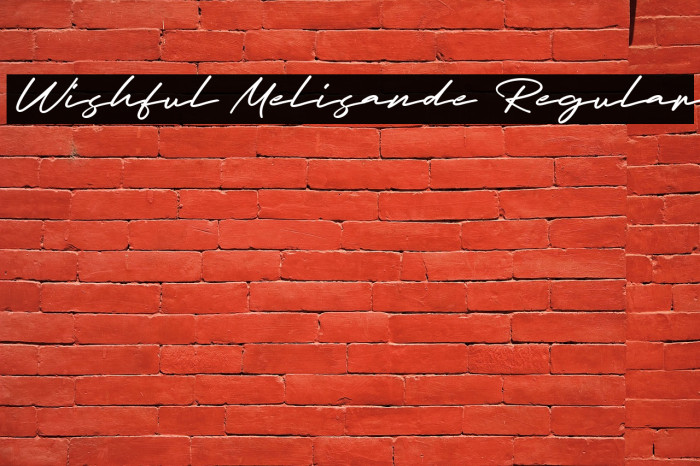 Wishful Melisande Regular